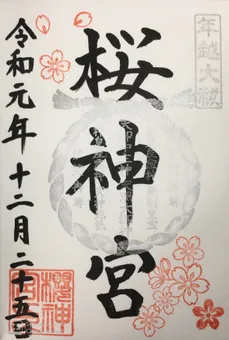 年越大祓
桜神宮
令和元年十二月二十五日
櫻神宮